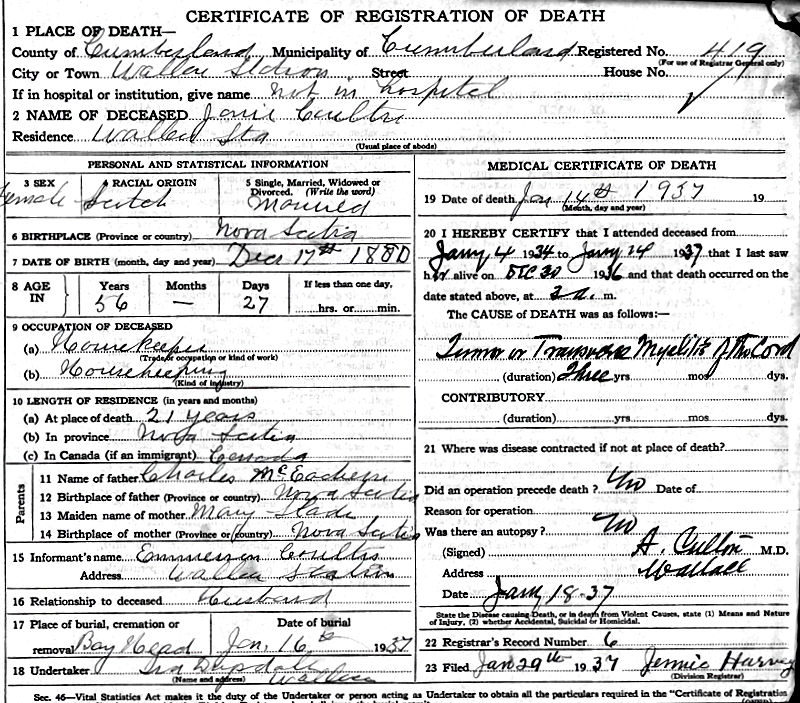 CERTIFICATE OF REGISTRATION OF DEATH
1 PLACE OF DEATH—
County of Cumberland Municipality of Cumberland Registered No. 419
(For use of Registrar General only)
City or Town Wallace Station Street House No.
If in hospital or institution, give name not in hospital
2 NAME OF DECEASED Coulter
Residence Wallace Sta
(Usual place of abode)
PERSONAL AND STATISTICAL INFORMATION
3 SEX 4 RACIAL ORIGIN 5 Single, Married, Widowed or Divorced. (Write the word)
Female Scotch Married
6 BIRTHPLACE (Province or country) Nova Scotia
7 DATE OF BIRTH (month, day, and year) Dec 17th 1880
8 AGE IN Years Months Days If less than one day,
56 — 27 hrs. or min.
9 OCCUPATION OF DECEASED
(a) Housekeeper
(Trade, occupation or kind of work)
(b) Housekeeping
(Kind of industry)
10 LENGTH OF RESIDENCE (in years and months)
(a) At place of death 21 years
(b) In province Nova Scotia
(c) In Canada (if an immigrant) Canada
Parents
11 Name of father Charles McEachern
12 Birthplace of father (Province or country) Nova Scotia
13 Maiden name of mother Mary Slade
14 Birthplace of mother (Province or country) Nova Scotia
15 Informant's name Emmerson
Address Wallace Station
16 Relationship to deceased Husband
17 Place of burial, cremation or removal Date of burial
Bay Head Jan, 16th 1937
18 Undertaker Wallace
(Name and address)
MEDICAL CERTIFICATE OF DEATH
19 Date of death Jan 14th 1937 19
(Month, day and year)
20 I HEREBY CERTIFY that I attended deceased from
Jany 4 1934 to Jany 14 1937 that I last saw
her alive on DEC 30 1936 and that death occurred on the
date stated above, at 3 a. m.
The CAUSE of DEATH was as follows:—
Tumor or Transverse Myelitis of the Cord
(duration) Three yrs. mos. dys.
CONTRIBUTORY
(duration) yrs. mos. dys.
21 Where was disease contracted if not at place of death?
Did an operation precede death? No Date of
Reason for operation
Was there an autopsy? No
(Signed) A. M.D.
Address Wallace
Date Jany 18-37
State the Disease causing Death, or in death from Violent Causes, state (1) Means and Nature
of Injury, (2) whether Accidental, Suicidal or Homicidal.
22 Registrar's Record Number 6
23 Filed Jan 29th 1937 Jennie Harvey
(Division Registrar)
Sec. 46—Vital Statistics Act makes it the duty of the Undertaker or person acting as Undertaker to obtain all the particulars required in the "Certificate of Registration